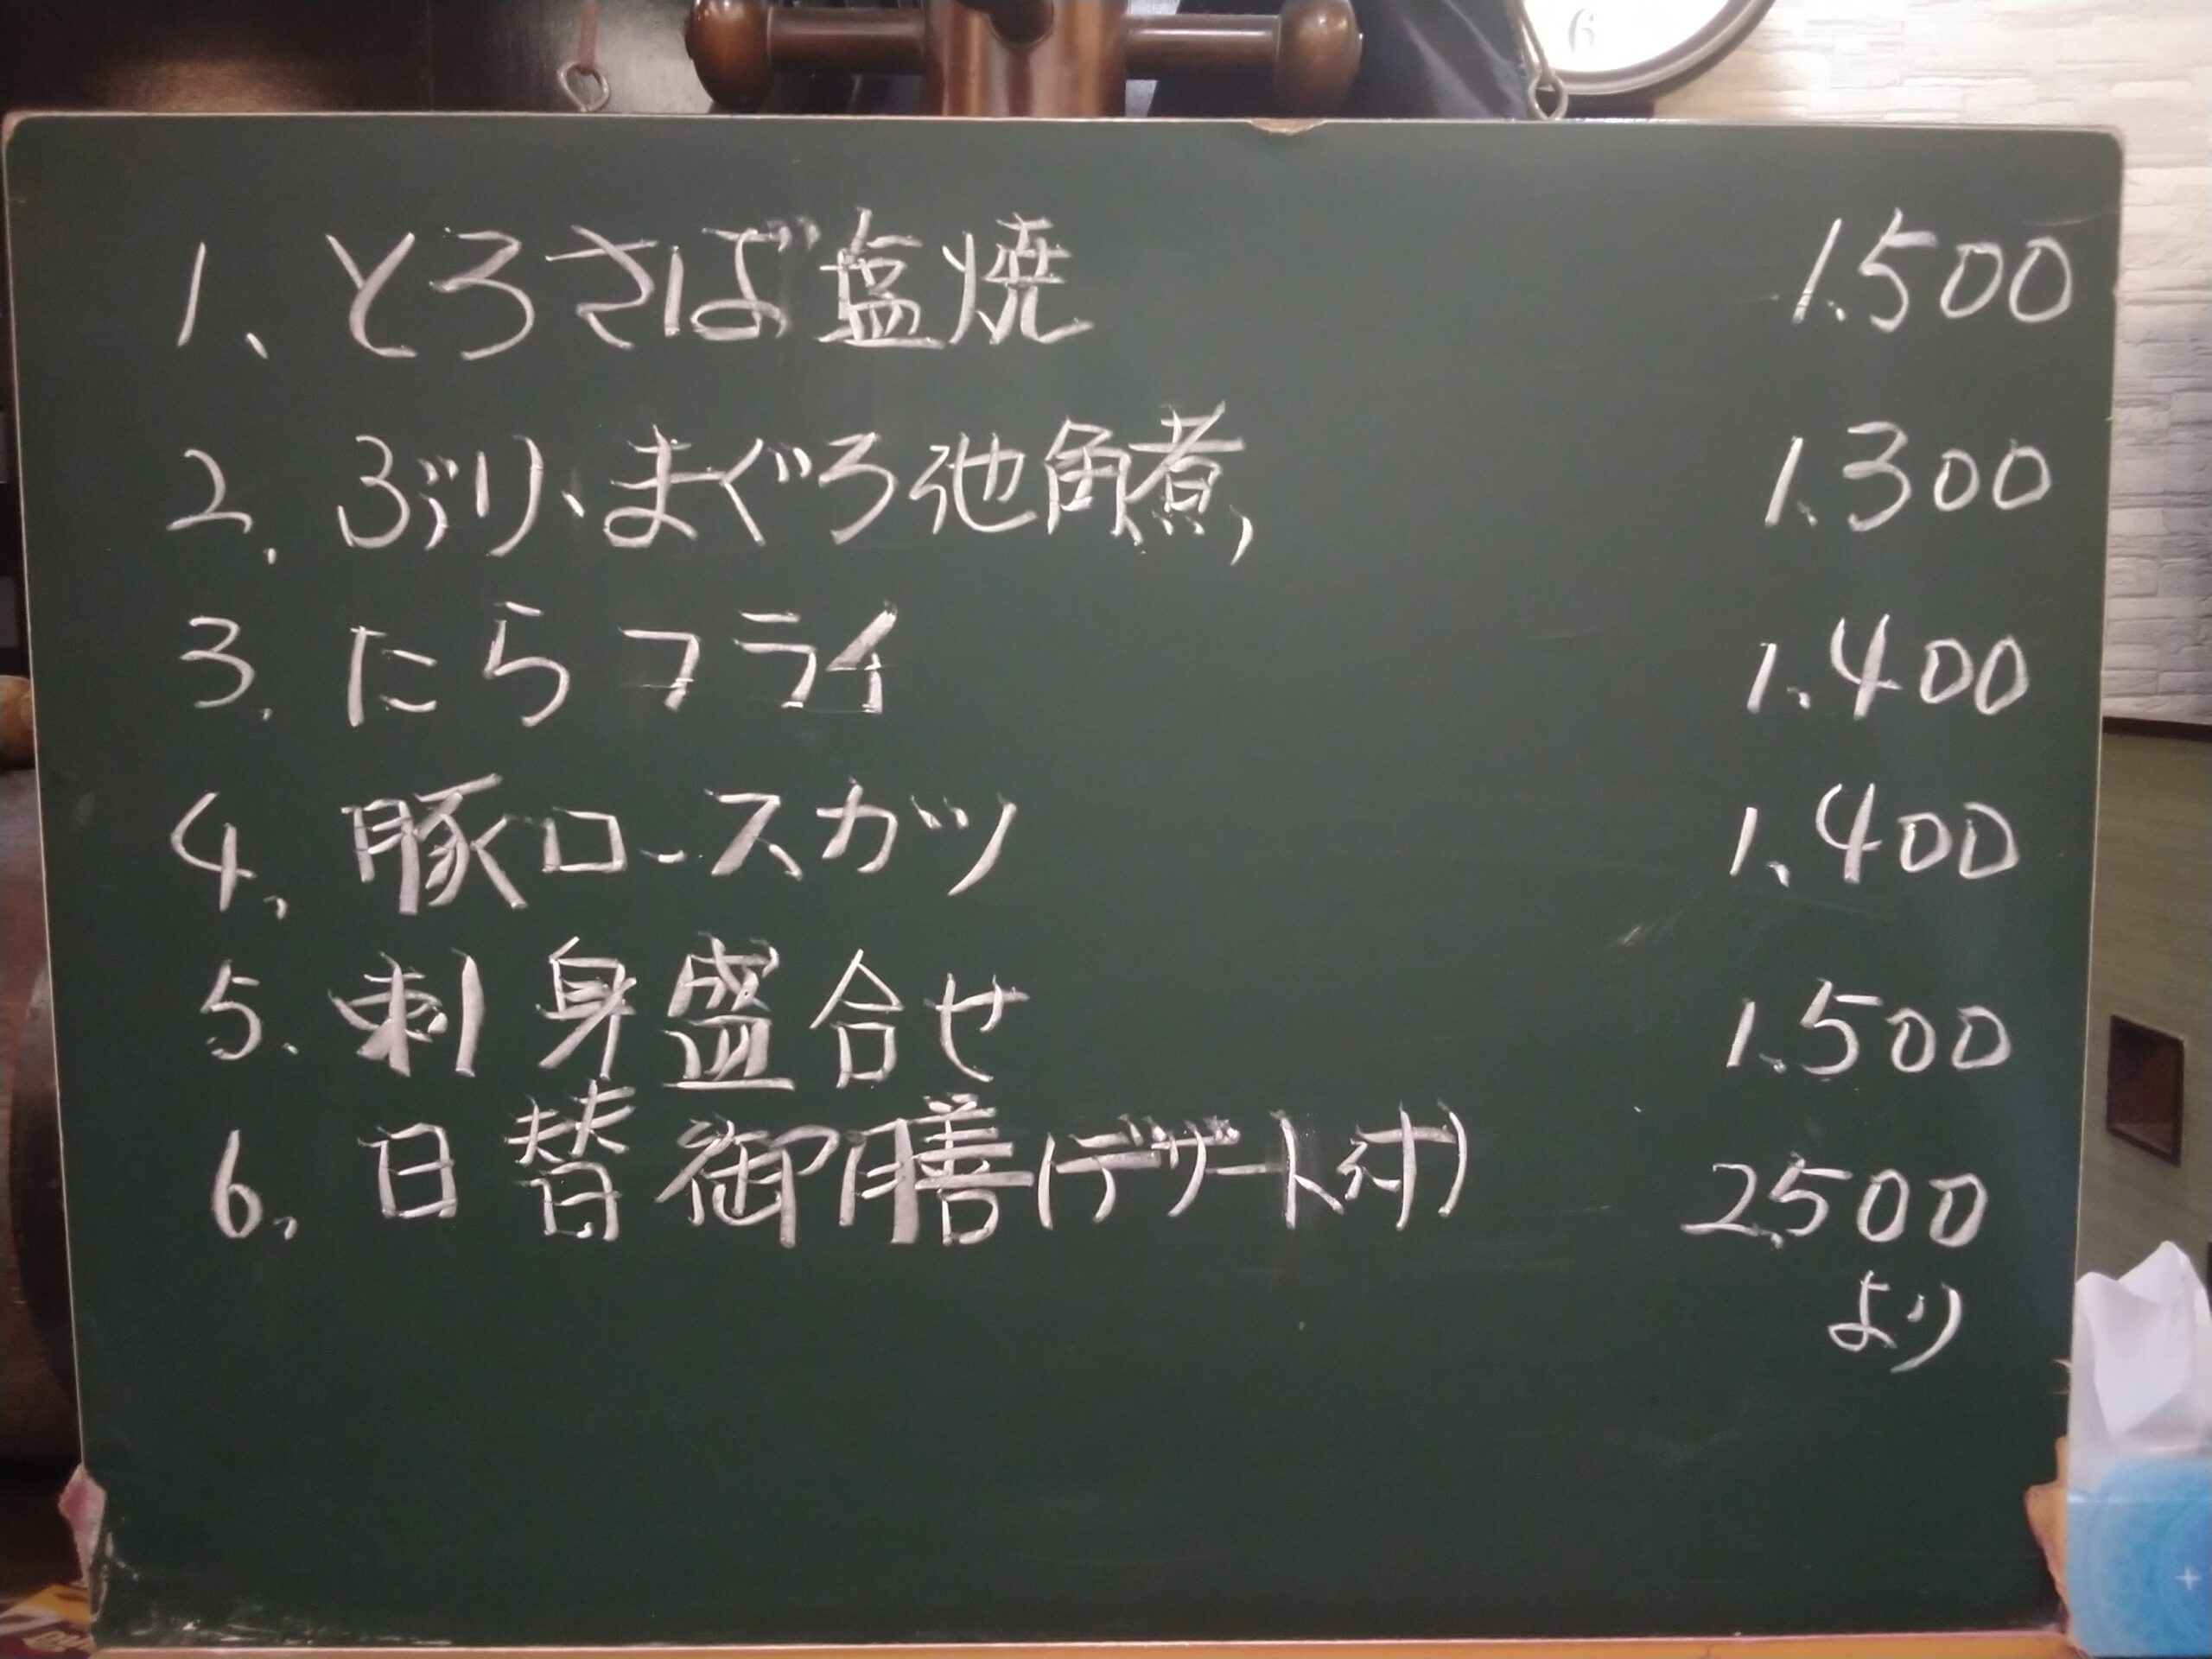 1、とろさば塩焼 1.500
2. ぶり、まぐろ池角煮, 1.300
3. たらフライ 1.400
4. 豚ロースカツ 1.400
5. 刺身盛合せ 1.500
6. 日替御膳(デザート付) 2,500
より
6